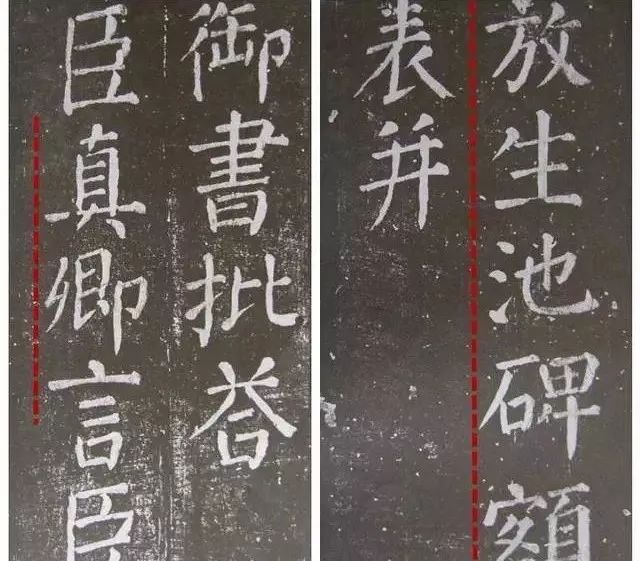 放生池碑額
表并
御書批荅
臣真卿言臣